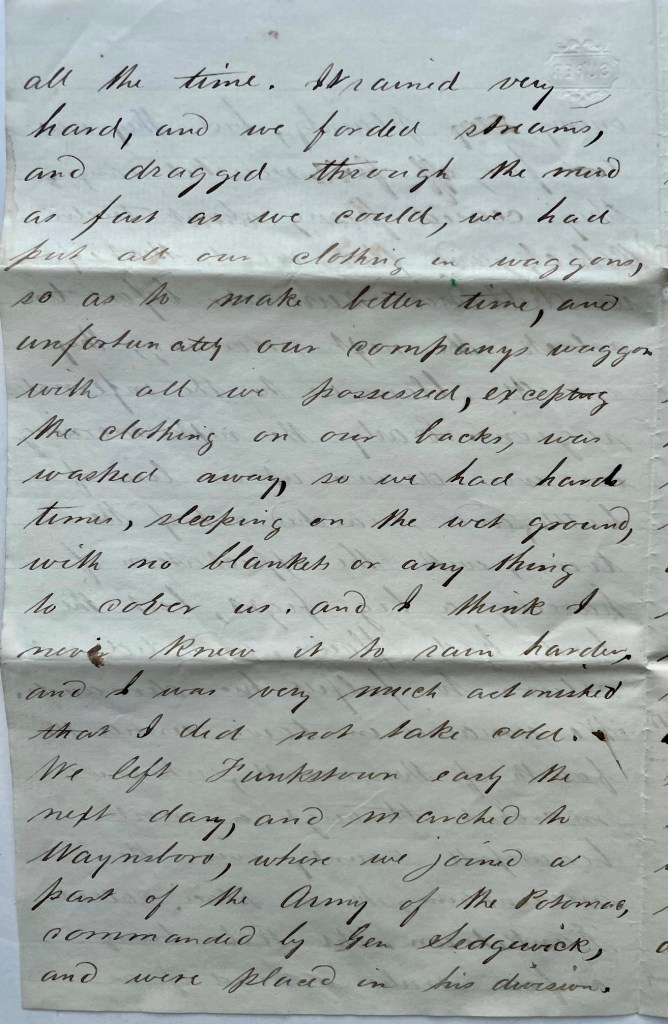 all the time. It rained very
hard, and we forded streams,
and dragged through the mud
as fast as we could, we had
put all our clothing in waggons,
so as to make better time, and
unfortunately our companys waggon
with all we possessed, excepting
the clothing on our backs, was
washed away, so we had hard
times, sleeping on the wet ground,
with no blankets or any thing
to cover us. and I think I
never knew it to rain harder,
and I was very much astonished
that I did not take cold.
We left Funkstown early the
next day, and marched to
Waynsboro, where we joined a
part of the Army of the Potomac,
commanded by Gen Sedgewick,
and were placed in his division.